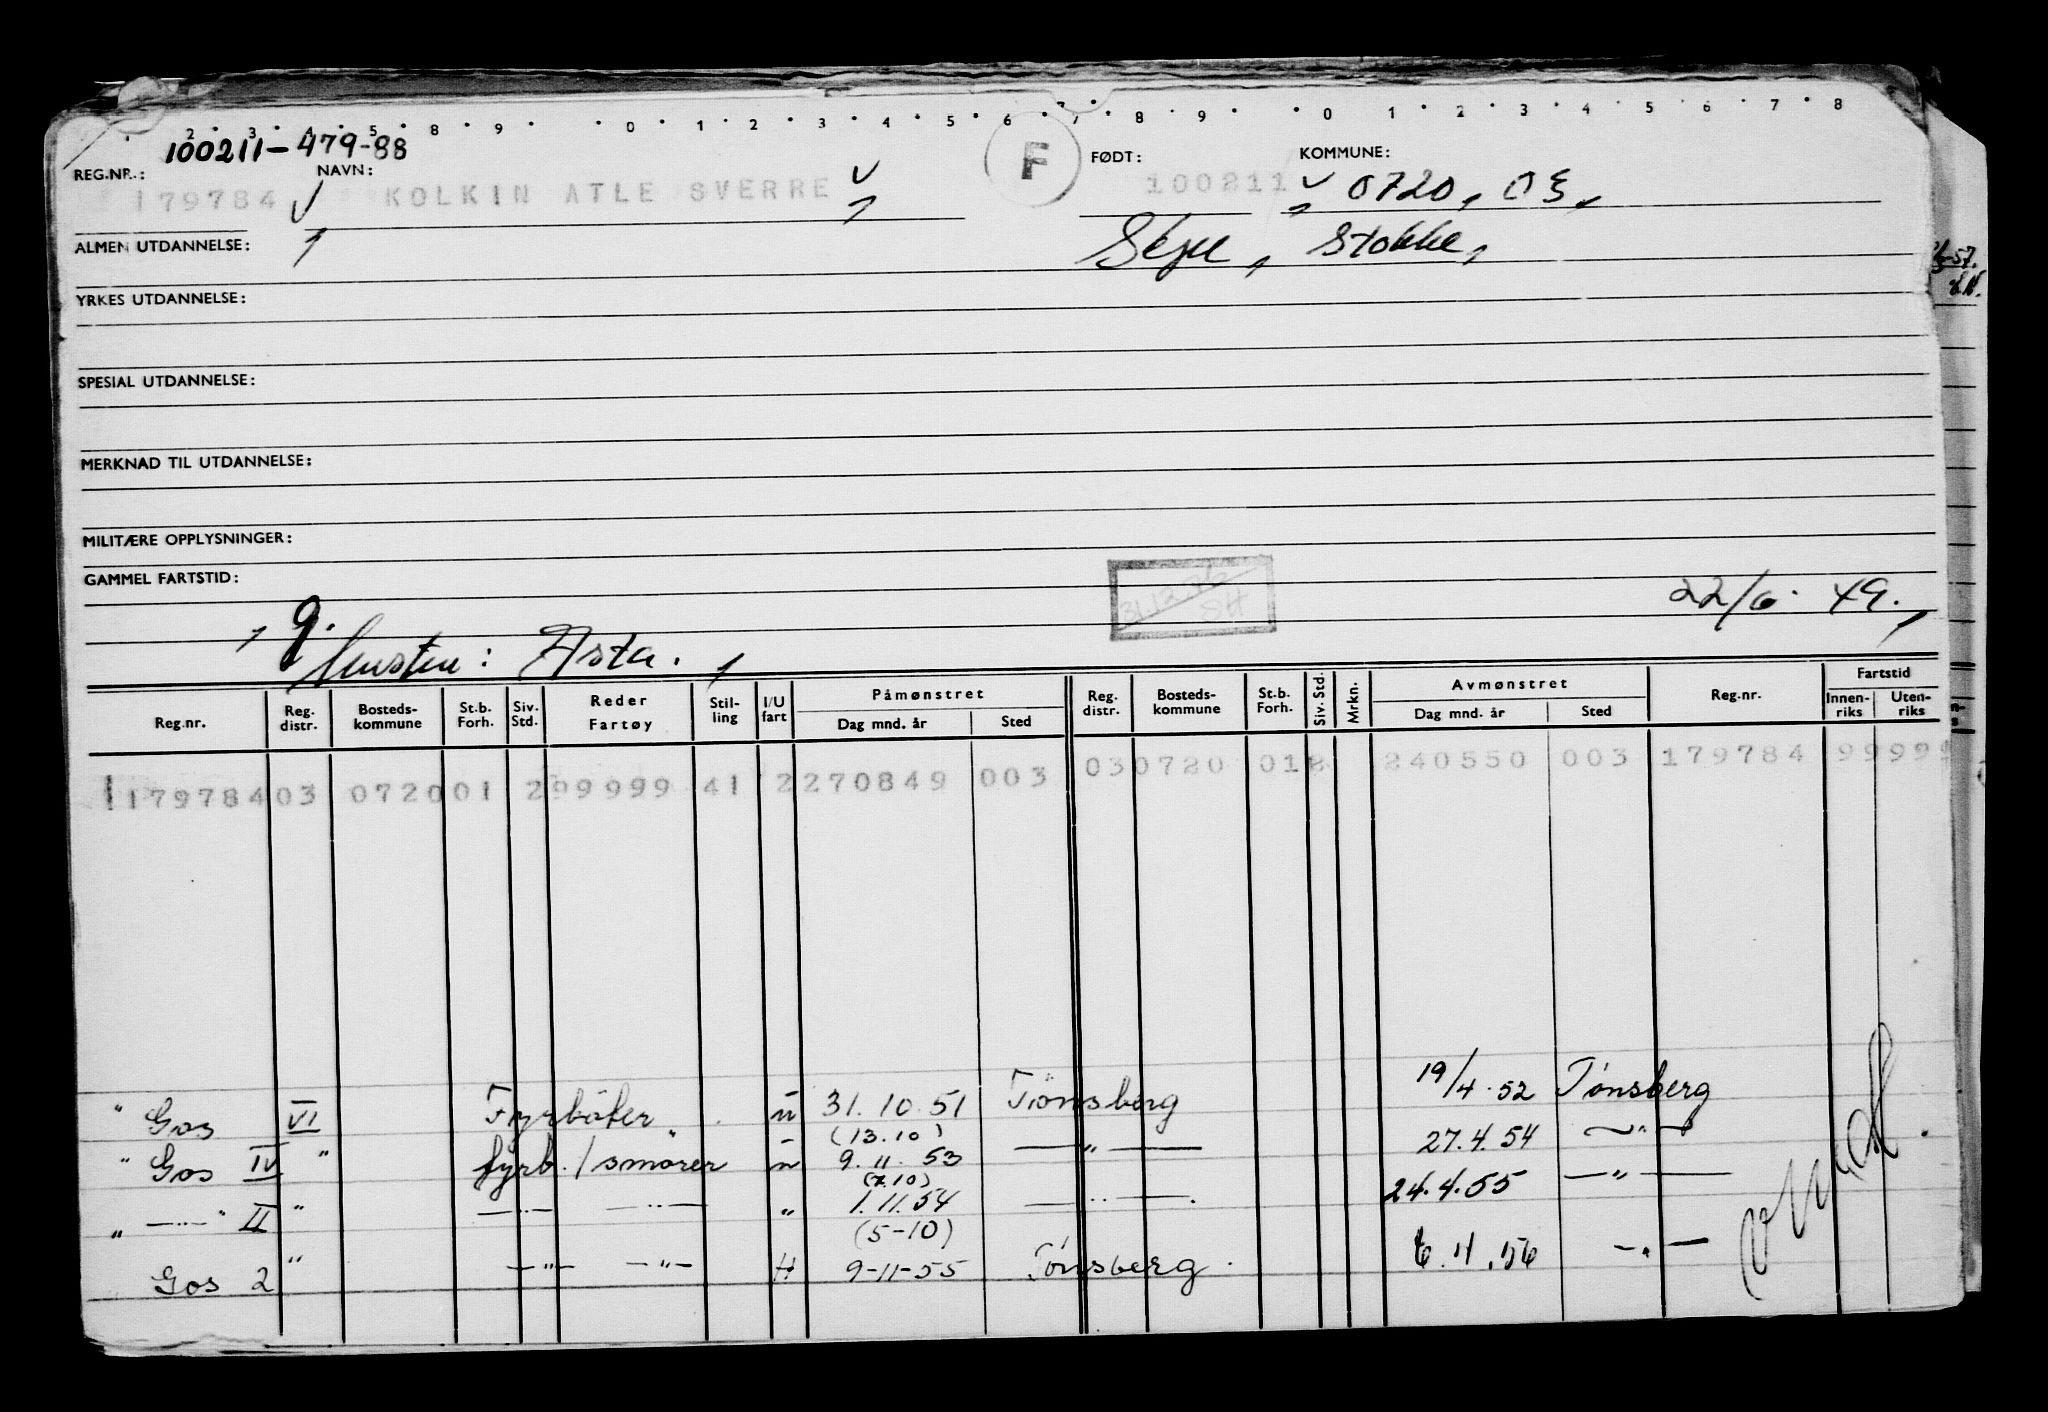 2 3 4 5 8 9 0 1 2 3 4 5 6 7 8 9 0 1 2 3 4 5 6 7 8
100211-479-88
REG.NR.: NAVN: F FØDT: KOMMUNE:
179784 KOLKIN ATLE SVERRE 100211 0720, 03,
ALMEN UTDANNELSE: Skjee, Stokke,
YRKES UTDANNELSE:
SPESIAL UTDANNELSE:
MERKNAD TIL UTDANNELSE:
MILITÆRE OPPLYSNINGER:
GAMMEL FARTSTID:
31.12.26
SH
22/6. 49.
g.
Hustru: Asta.
Reg.nr. Reg. distr. Bosteds-kommune St.b. Forh. Siv. Std. Reder Fartøy Stil-ling I/U fart Påmønstret Dag mnd. år Sted Reg. distr. Bosteds-kommune St.b. Forh. Siv. Std. Mrkn. Avmønstret Dag mnd. år Sted Reg.nr. Fartstid Innen-riks Uten-riks
179784 03 0720 01 2 99999 41 2 270849 003 03 0720 01 2 240550 003 179784 9999
" Gos VI Fyrbøter u 31.10.51 Tönsberg 19/4.52 Tønsberg
(13.10)
" Gos IV " fyrb./smører " 9.11.53 — " — 27.4.54 — " —
(7.10)
" — " — II " — " — — " — " 1.11.54 — " — 24.4.55 — " —
(5-10)
Gos 2 " — " — — " — H 9-11-55 Tønsberg 6.4.56 — " —